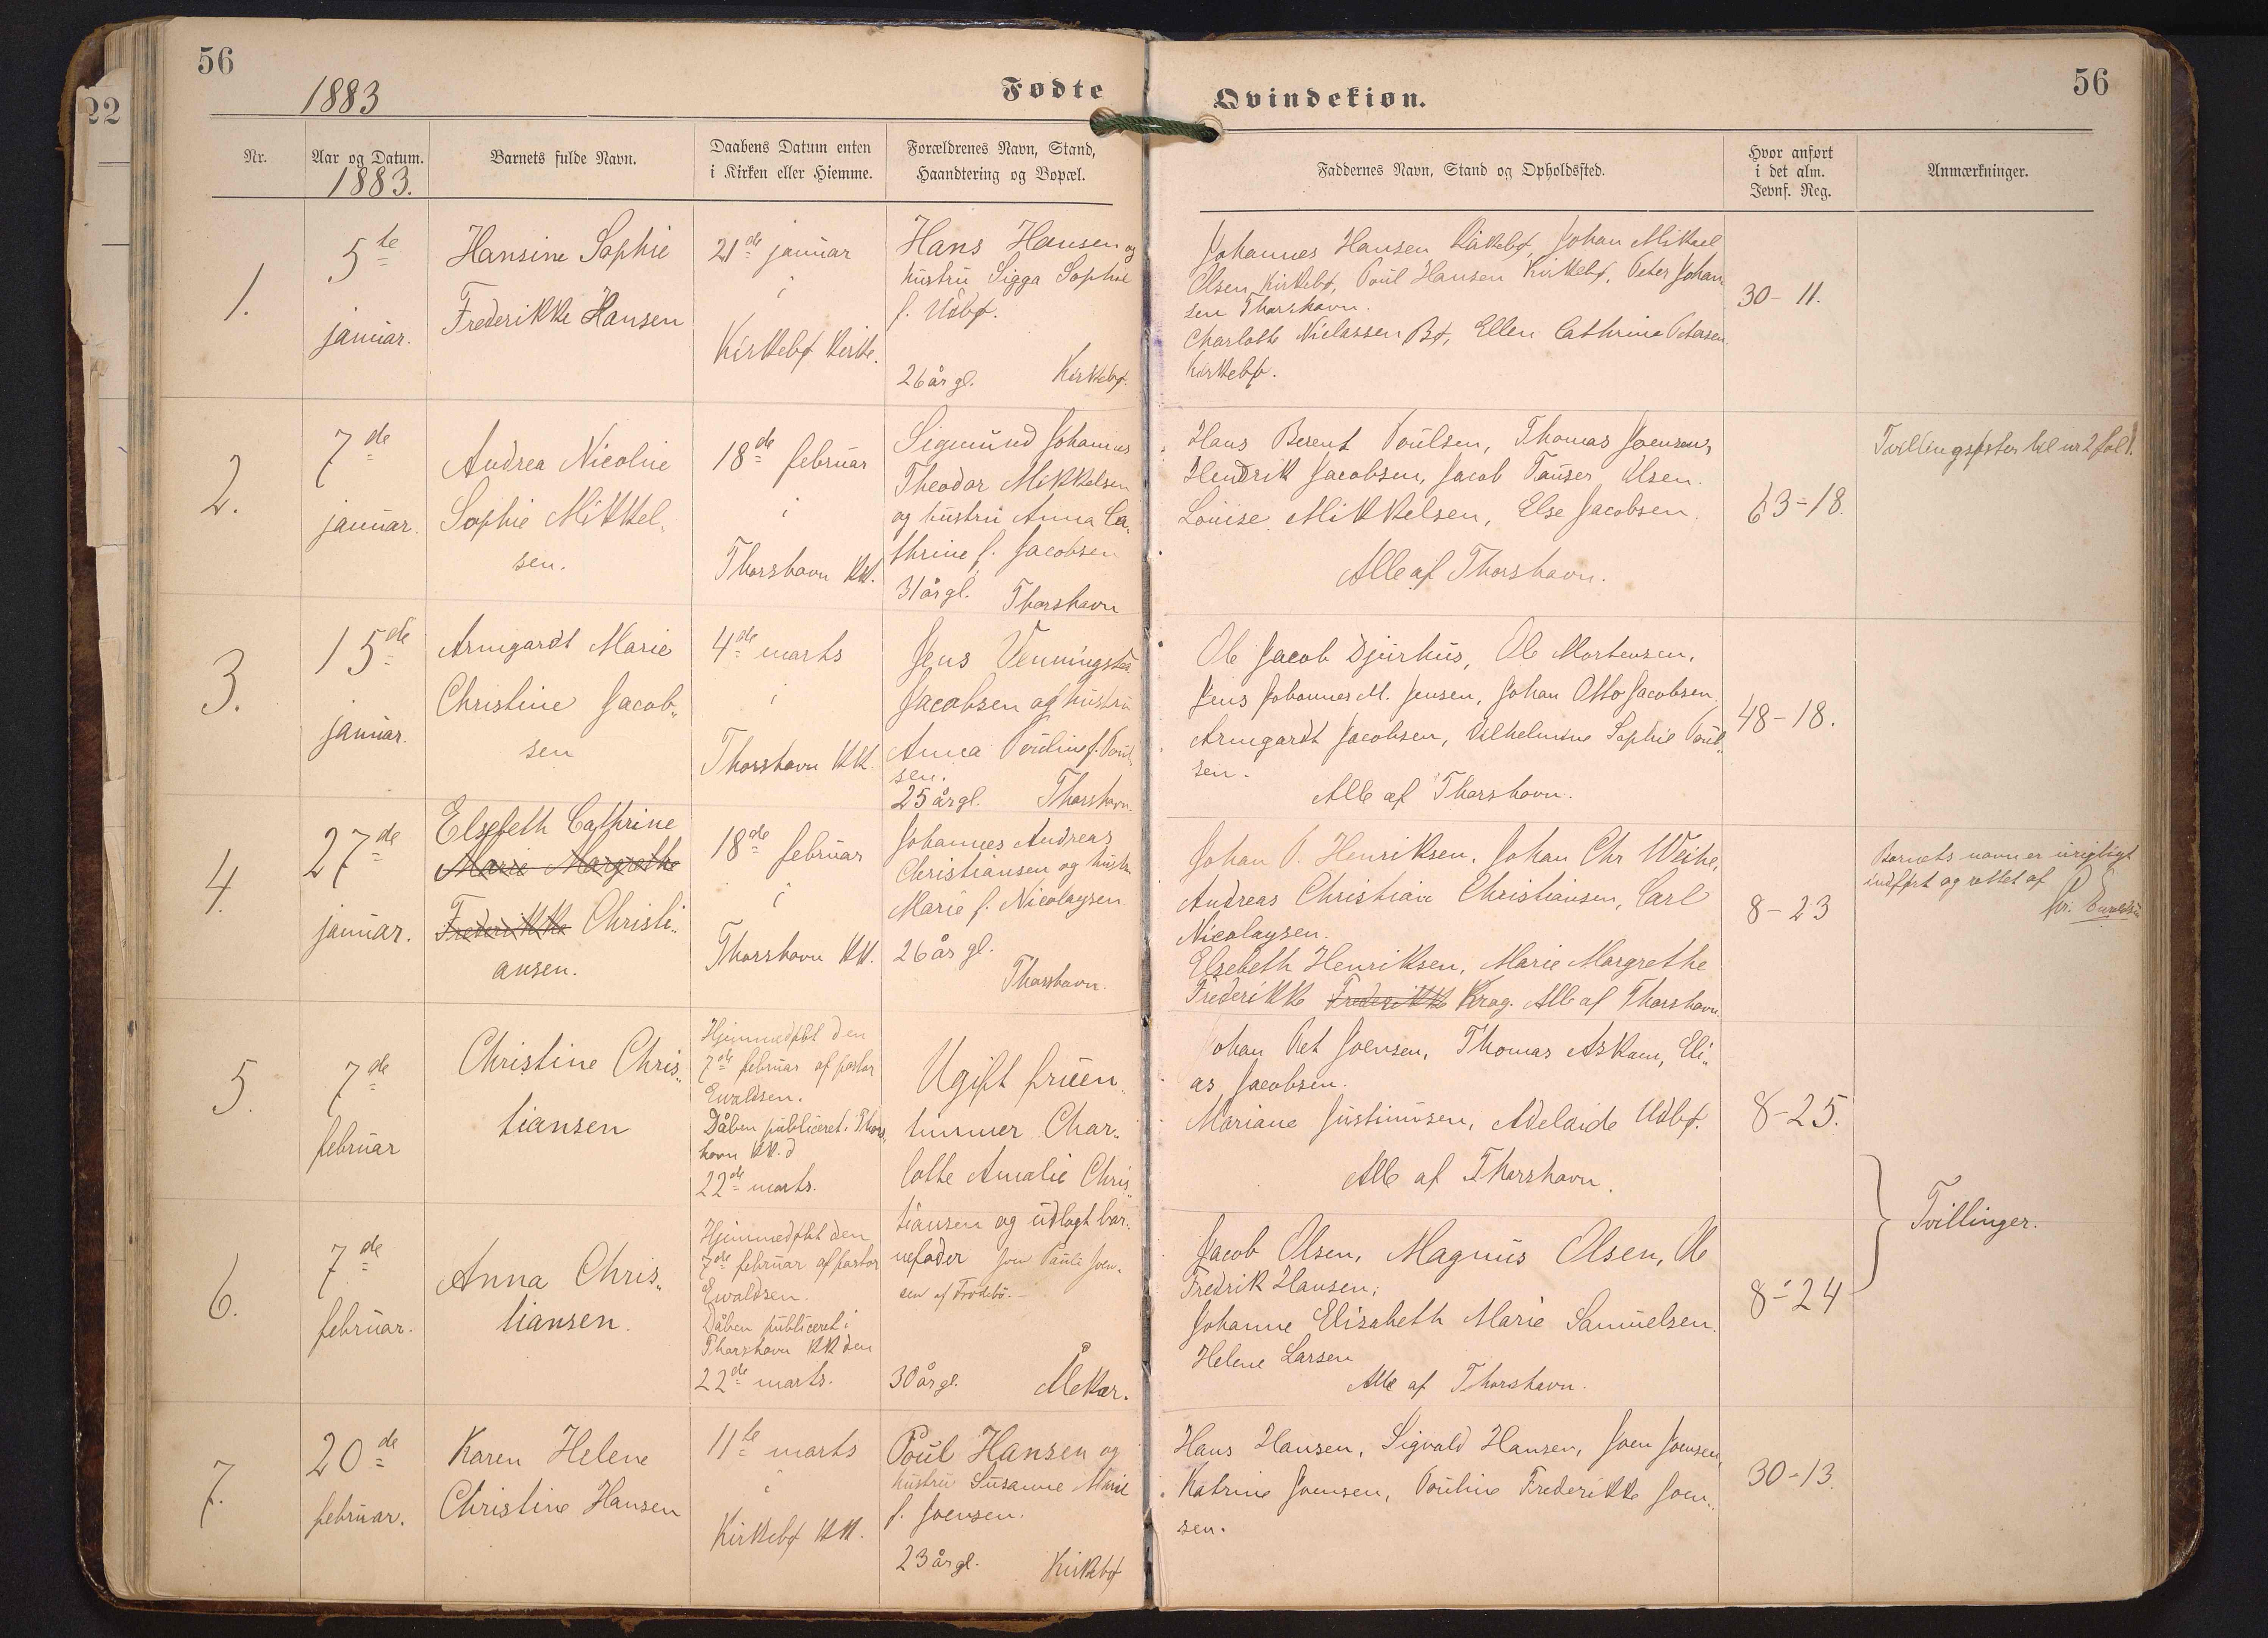 56
1883
Fødte
Qvindekiøn.
56
22
Nr.
Aar og Datum.
1883.
Barnets fulde Navn.
Daabens Datum enten
i Kirken eller Hiemme.
Forældrenes Navn, Stand,
Haandtering og Bopæl.
Faddernes Navn, Stand og Opholdssted.
Hvor anført
i det alm.
Jevnf. Reg.
Anmærkninger.
1.
5te
januar.
Hansine Sophie
Frederikke Hansen
21de januar
i
Kirkebø Kirke.
Hans Hansen og
hustru Sigga Sophie
f. Udbø.
26 år gl. Kirkebø.
Johannes Hansen Kirkebø, Johan Mikael
Olsen Kirkebø, Poul Hansen Kirkebø, Peter Johan-
sen Thorshavn.
Charlotte Nielassen Bø, Ellen Cathrina Petersen
Kirkebø.
30 - 11.
2.
7de
januar.
Andrea Nicoline
Sophie Mikkel-
sen.
18de februar
i
Thorshavn KK.
Sigmund Johannes
Theodor Mikkelsen
og hustru Anna Ca-
thrine f. Jacobsen
31 år gl. Thorshavn
Hans Berent Poulsen, Thomas Joensen,
Hendrik Jacobsen, Jacob Tauser Olsen.
Louise Mikkelsen, Else Jacobsen.
Alle af Thorshavn.
63 - 18.
Tvillingsøster til nr 2 fol 1.
3.
15de
januar.
Armgardt Marie
Christine Jacob-
sen
4de marts
i
Thorshavn KK.
Jens Venningsted
Jacobsen og hustru
Anna Pouline f. Poul-
sen.
25 år gl. Thorshavn.
Ole Jacob Djurhus, Ole Mortensen,
Jens Johannes M. Jensen, Johan Otto Jacobsen
Armgardt Jacobsen, Vilhelmine Sophie Poul-
sen.
Alle af Thorshavn.
48 - 18.
4.
27de
januar.
Elsebeth Cathrine
Marie Margrethe
Frederikke Christi-
ansen.
18de februar
i
Thorshavn KK.
Johannes Andreas
Christiansen og hustru
Marie f. Nicolaysen
26 år gl.
Thorshavn.
Johan P. Henriksen, Johan Chr Weihe,
Andreas Christian Christiansen, Carl
Nicolaysen.
Elsebeth Henriksen, Marie Margrethe
Frederikke Frederikke Krag. Alle af Thorshavn.
8 - 23
Barnets navn er urigtigt
indført og rettet af
Ewaldsen
5.
7de
februar
Christine Chris-
tiansen
Hjemmedøbt den
7de februar af pastor
Ewaldsen.
Dåben publiceret i Thors-
havn KK. d
22de marts.
Ugift fruen-
timmer Char-
lotte Amalie Chris-
tiansen og udlagt bar-
nefader Joen Pauli Joen-
sen af Trodebø.
30 år gl.
Johan Pet Joensen, Thomas Askam, Eli-
as Jacobsen.
Mariane Justinussen, Adelaide Udbø.
Alle af Thorshavn.
8 - 25.
Tvillinger.
6.
7de
februar.
Anna Chris-
tiansen.
Hjemmedøbt den
7de februar af pastor
Ewaldsen.
Dåben publiceret i
Thorshavn KK den
22de marts.
Jacob Olsen, Magnus Olsen, Ole
Fredrik Hansen;
Johanne Elisabeth Marie Samuelsen.
Helene Larsen
Alle af Thorshavn.
8 - 24
7.
20de
februar.
Karen Helene
Christine Hansen
11te marts
i
Kirkebø KK.
Poul Hansen og
hustru Susanne Marie
f. Joensen.
23 år gl. Kirkebø
Hans Hansen, Sigvald Hansen, Joen Joensen,
Katrine Joensen, Pouline Frederikke Joen-
sen.
30 - 13.